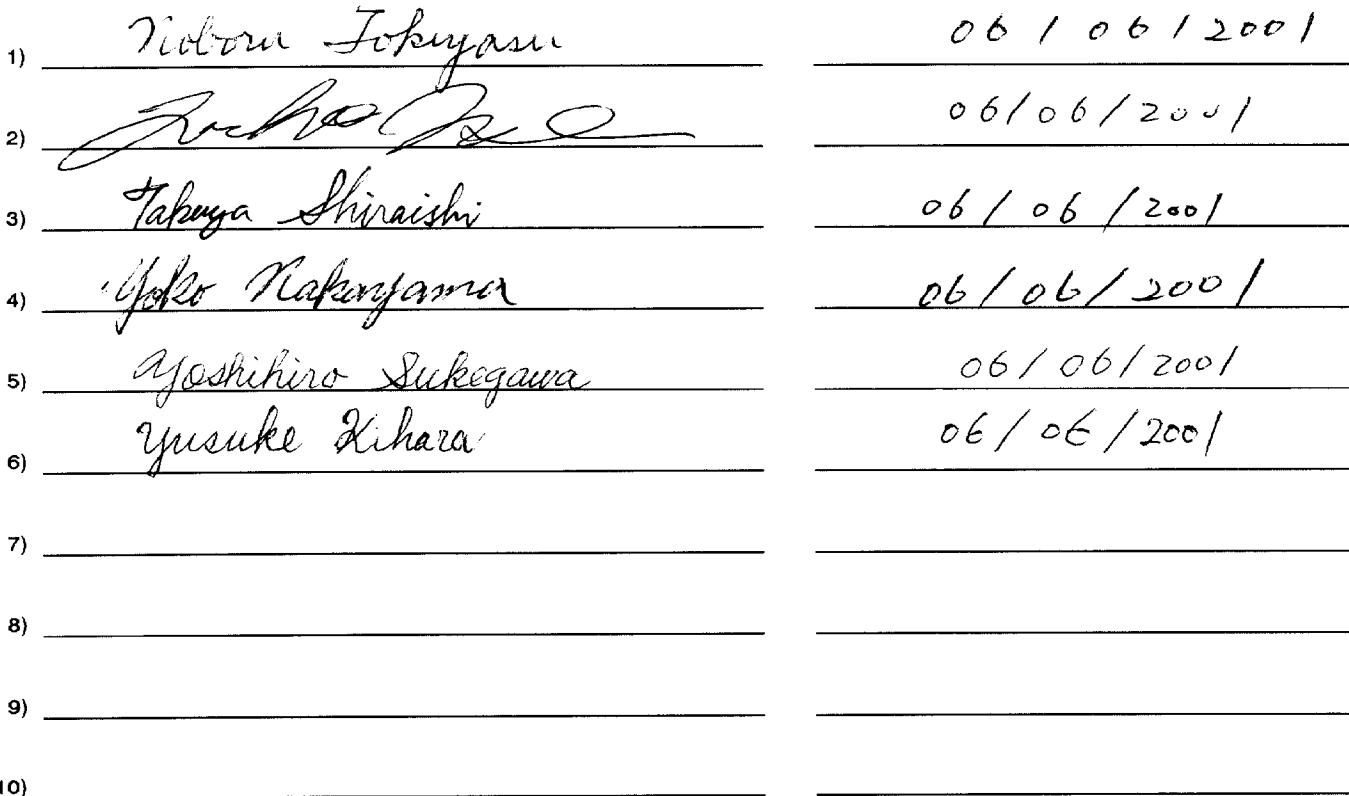 1) Noboru Tokuyasu 06/06/2001
2) 06/06/2001
3) Takuya Shiraishi 06/06/2001
4) Yoko Nakayama 06/06/2001
5) Yoshihiro Sukegawa 06/06/2001
6) Yusuke Kihara 06/06/2001
7)
8)
9)
10)